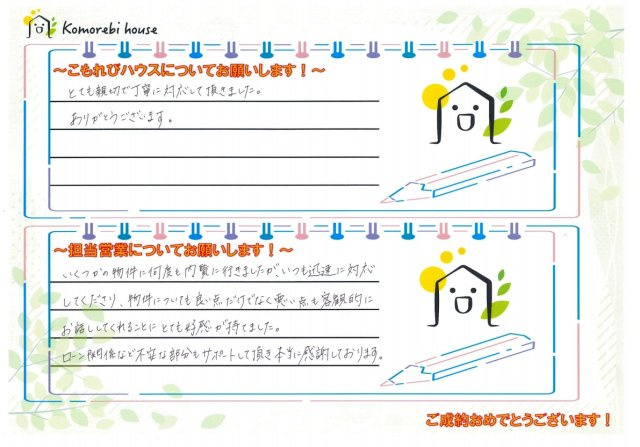 Komorebi house
～こもれびハウスについてお願いします！～
とても親切で丁寧に対応して頂きました。
ありがとうございます。
～担当営業についてお願いします！～
いくつかの物件に何度も内覧に行きましたが、いつも迅速に対応
してくださり、物件についても良い点だけでなく悪い点も客観的に
お話ししてくれることにとても好感が持てました。
ローン関係など不安な部分もサポートして頂き本当に感謝しております。
ご成約おめでとうございます！